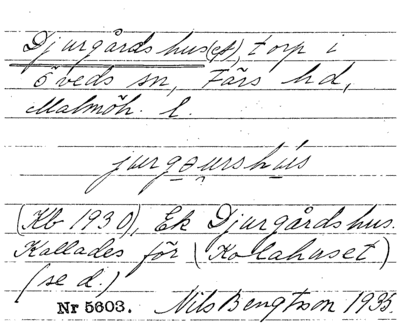 Djurgårdshus(et), torp i
Öveds sn, Färs hd,
Malmöh. l.
jurgou̯rshúis
(Kb 1930), Ek Djurgårdshus.
Kallades för (Kolahuset)
(se d.)
Nr 5603. Nils Bengtsson 1935.